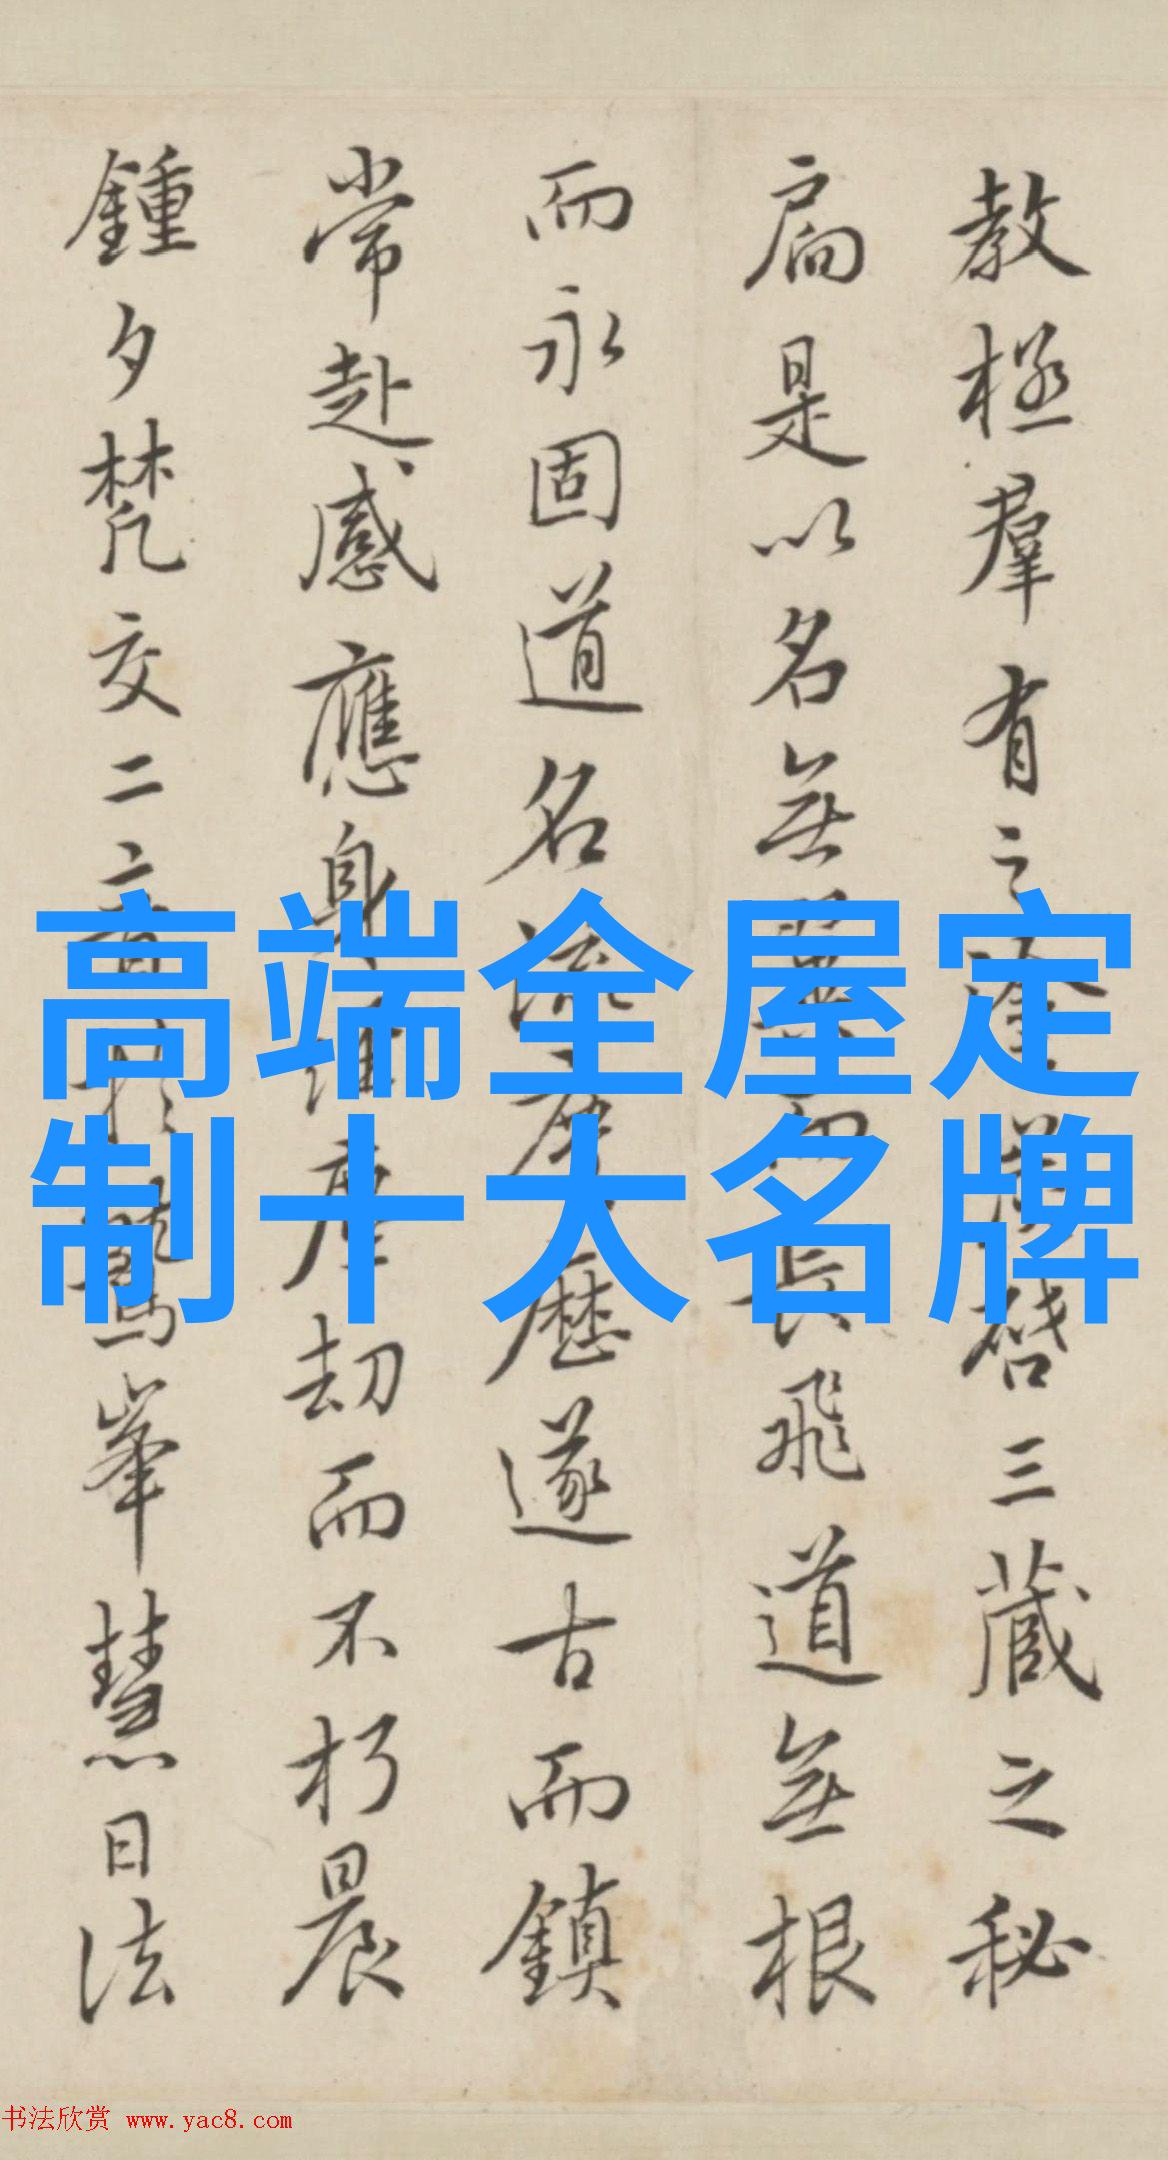 教拯羣有之塗炭啓三藏之秘
扃是以名無翼而長飛道無根
而永固道名流慶歷遂古而鎮
常赴感應身經塵劫而不朽晨
鍾夕梵交二音於鷲峯慧日法
高端全屋定
制十大名牌
书法欣赏 www.yac8.com